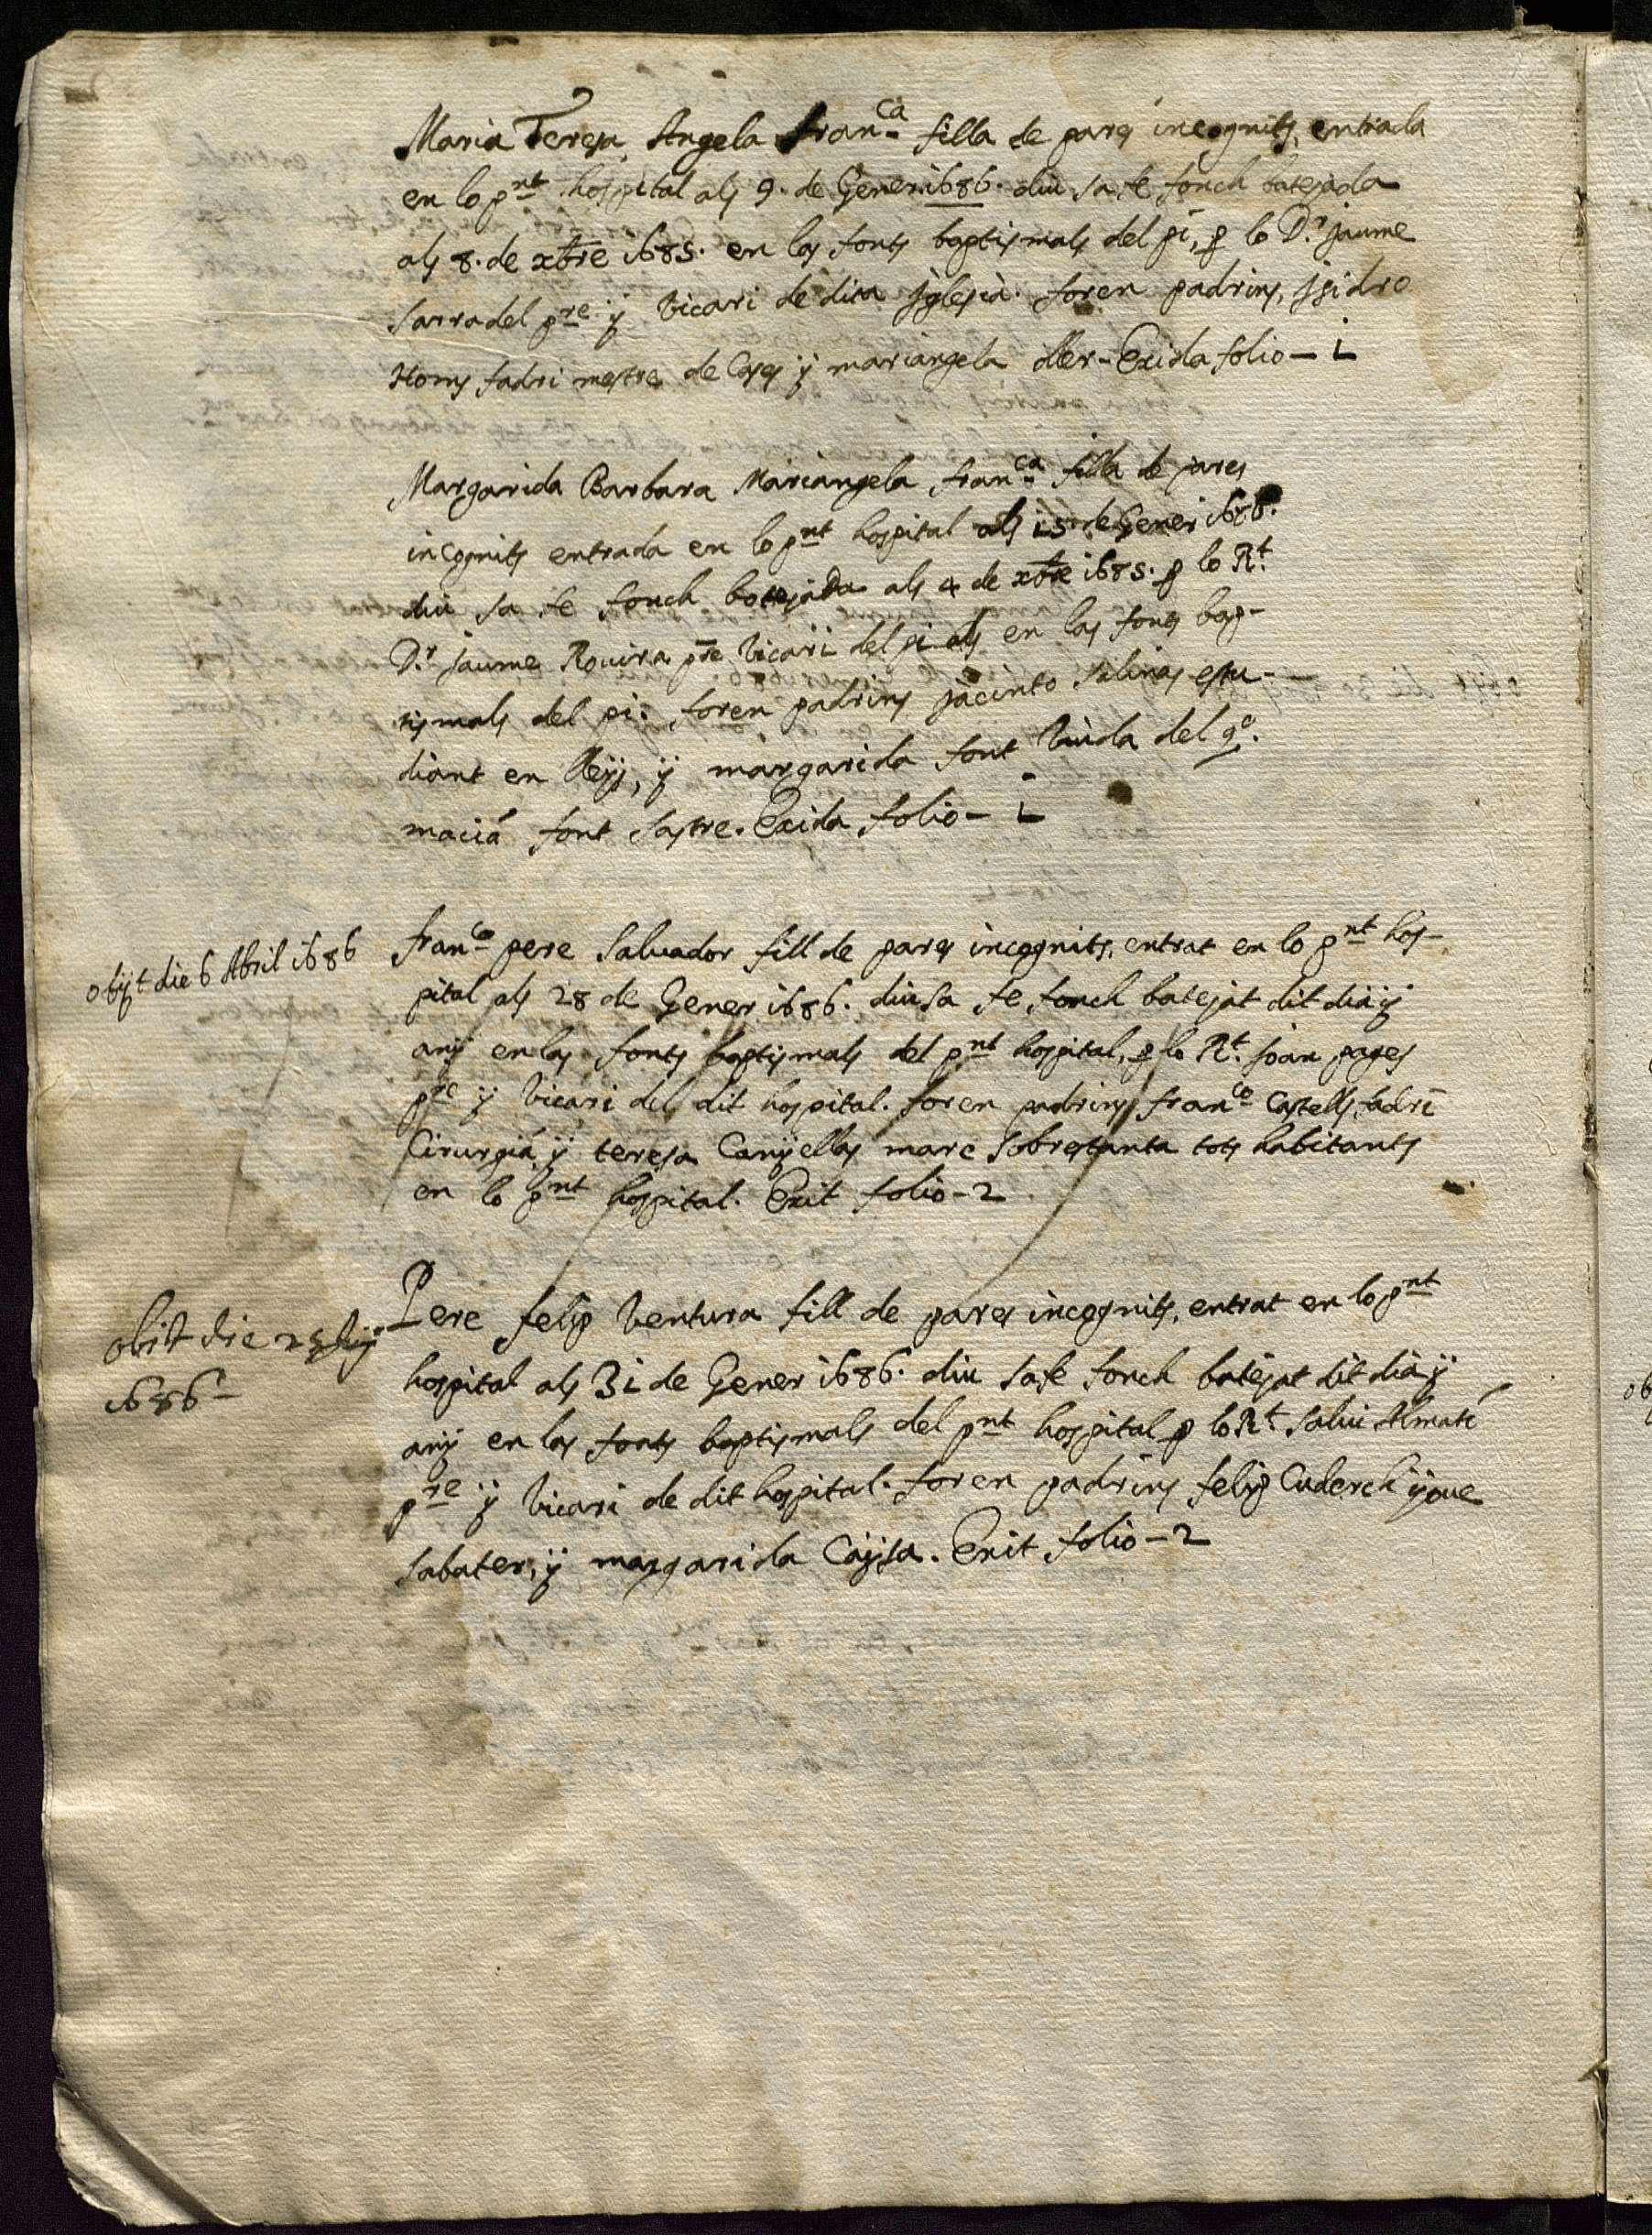 Maria Teresa Angela fran^ca filla de pares incognits, entrada
en lo p^nt hospital als 9. de Gener 1686. diu sa fe fonch batejada
als 8. de xbre 1685. en las fonts baptismals del pi, p lo D.^r jaume
sarradel p^re ÿ Vicari de dita jglesia. foren padrins, jsidro
Homs fadri mestre de Cases ÿ mariangela oller - Exida folio - 1
Margarida Barbara Mariangela fran^ca filla de pares
incognits entrada en lo p^nt hospital als 15 de Gener 1686.
diu sa fe fonch batejada als 4 de xbre 1685. p lo R^t.
D.^r jaume Rovira p^re Vicari del pi als en las fonts bap-
tismals del pi. foren padrins jacinto salinas estu-
diant en lleÿs, ÿ margarida font Viuda del q^o.
maciá font sastre. Exida folio - 1
obÿt die 6 Abril 1686
fran^co pere Salvador fill de pares incognits, entrat en lo p^nt hos-
pital als 28 de Gener 1686. diu sa fe fonch batejat dit dia ÿ
anÿ en las fonts baptismals del p^nt hospital, p lo R^t. joan pages
p^re ÿ Vicari del dit hospital. foren padrins fran^co Castells fadri
Cirurgiá ÿ teresa Canÿellas mare sobrestanta tots habitants
en lo p^nt hospital. Exit folio - 2
obit die
1686
Pere felip Ventura fill de pares incognits, entrat en lo p^nt
hospital als 31 de Gener 1686. diu sa fe fonch batejat dit dia ÿ
anÿ en las fonts baptismals del p^nt hospital p lo R^t. salvi Almató
p^re ÿ Vicari de dit hospital. foren padrins felip Cuderch ÿove
sabater, ÿ margarida Caÿsa. Exit folio - 2